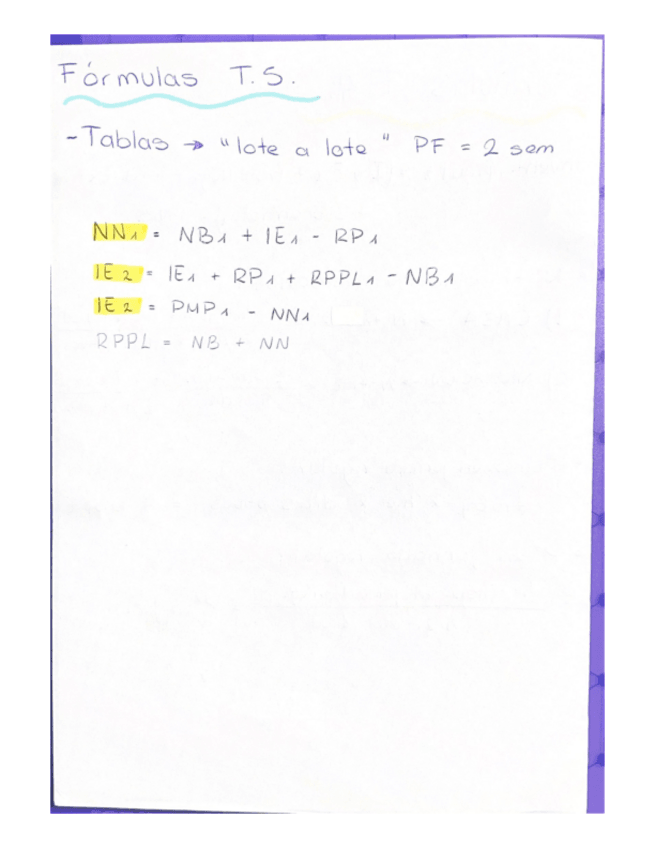 Fórmulas T.S.
- Tablas → "lote a lote" PF = 2 sem
NN1 = NB1 + IE1 - RP1
IE2 = IE1 + RP1 + RPPL1 - NB1
IE2 = PMP1 - NN1
RPPL = NB + NN